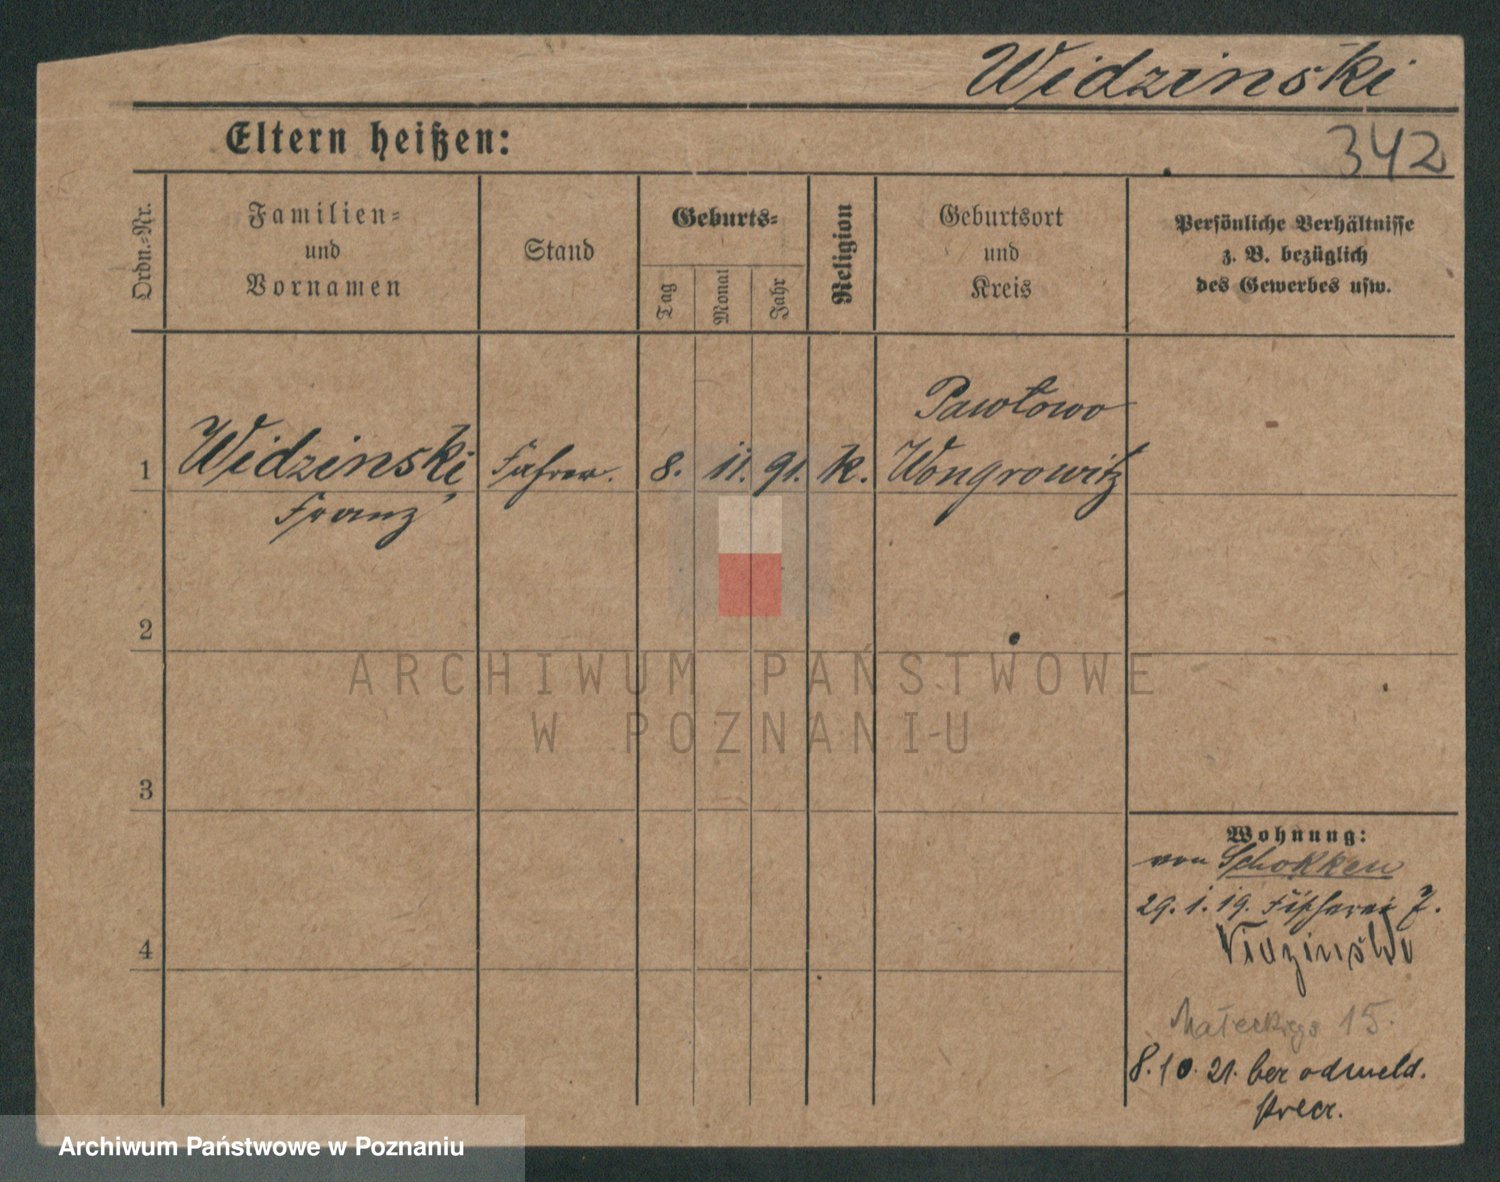 Widzinski
Eltern heißen:
342
Ordn.-Nr.
Familien-
und
Vornamen
Stand
Geburts-
Tag
Monat
Jahr
Religion
Geburtsort
und
Kreis
Persönliche Verhältnisse
z. B. bezüglich
des Gewerbes usw.
Pawłowo
1 Widzinski, 8. 11. 91. k. Wongrowitz
Franz
2
ARCHIWUM PAŃSTWOWE
W POZNANIU
3
Wohnung:
von Schokken
29. 1. 19. Fischerei 7.
Widzinski
4
Małeckiego 15.
8. 10. 21. bez odmeld.